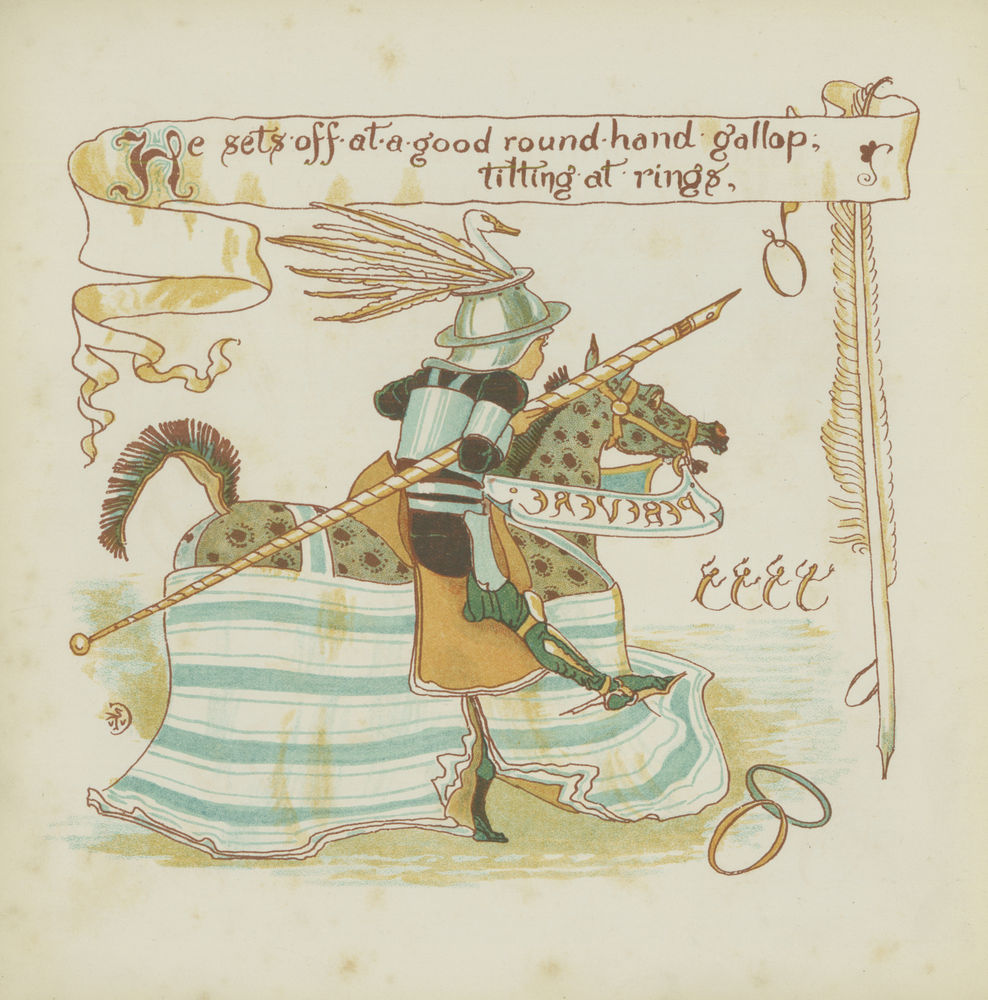 He sets·off·at·a·good round·hand gallop;
tilting·at rings,